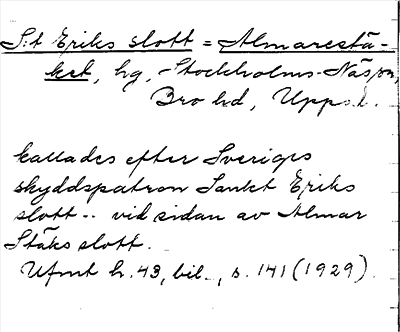 S:t Eriks slott = Almarestä-
ket, hg, Stockholms-Näs sn,
Bro hd, Upps.l.
kallades efter Sveriges
skyddspatron Sankt Eriks
slott-- vid sidan av Almar
Stäks slott.
Ufmt h.43, bil., s. 141 (1929).